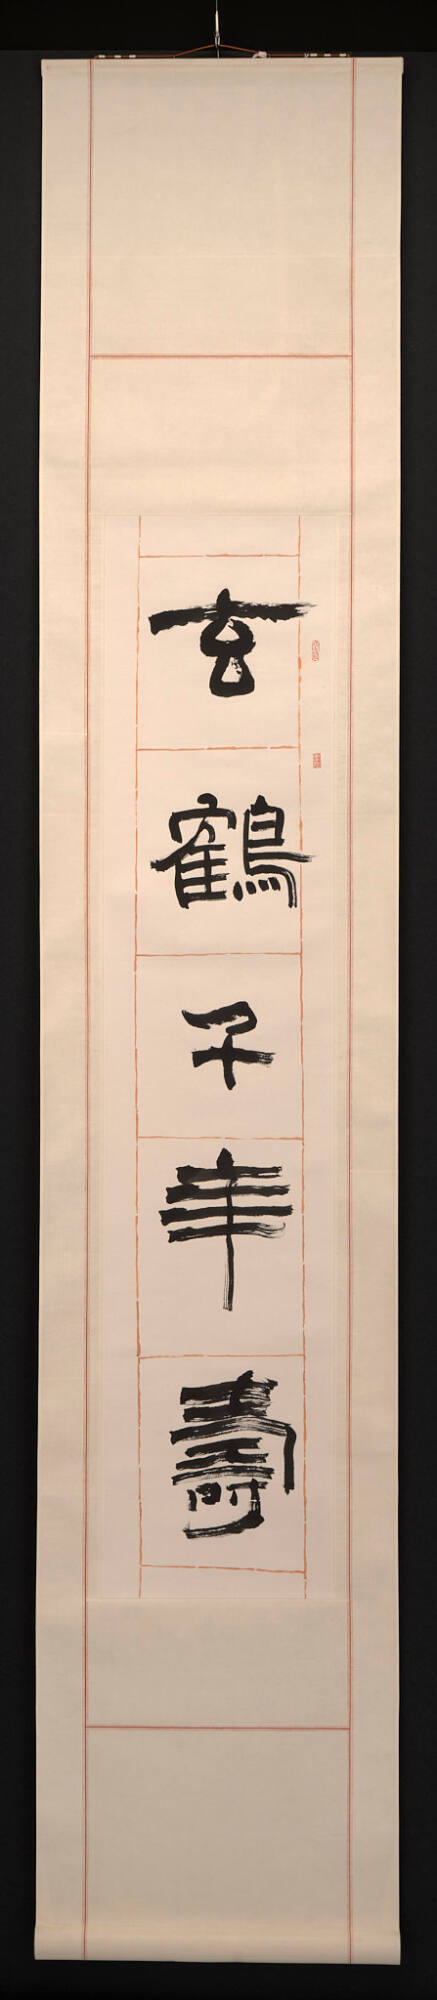 玄鶴千年壽